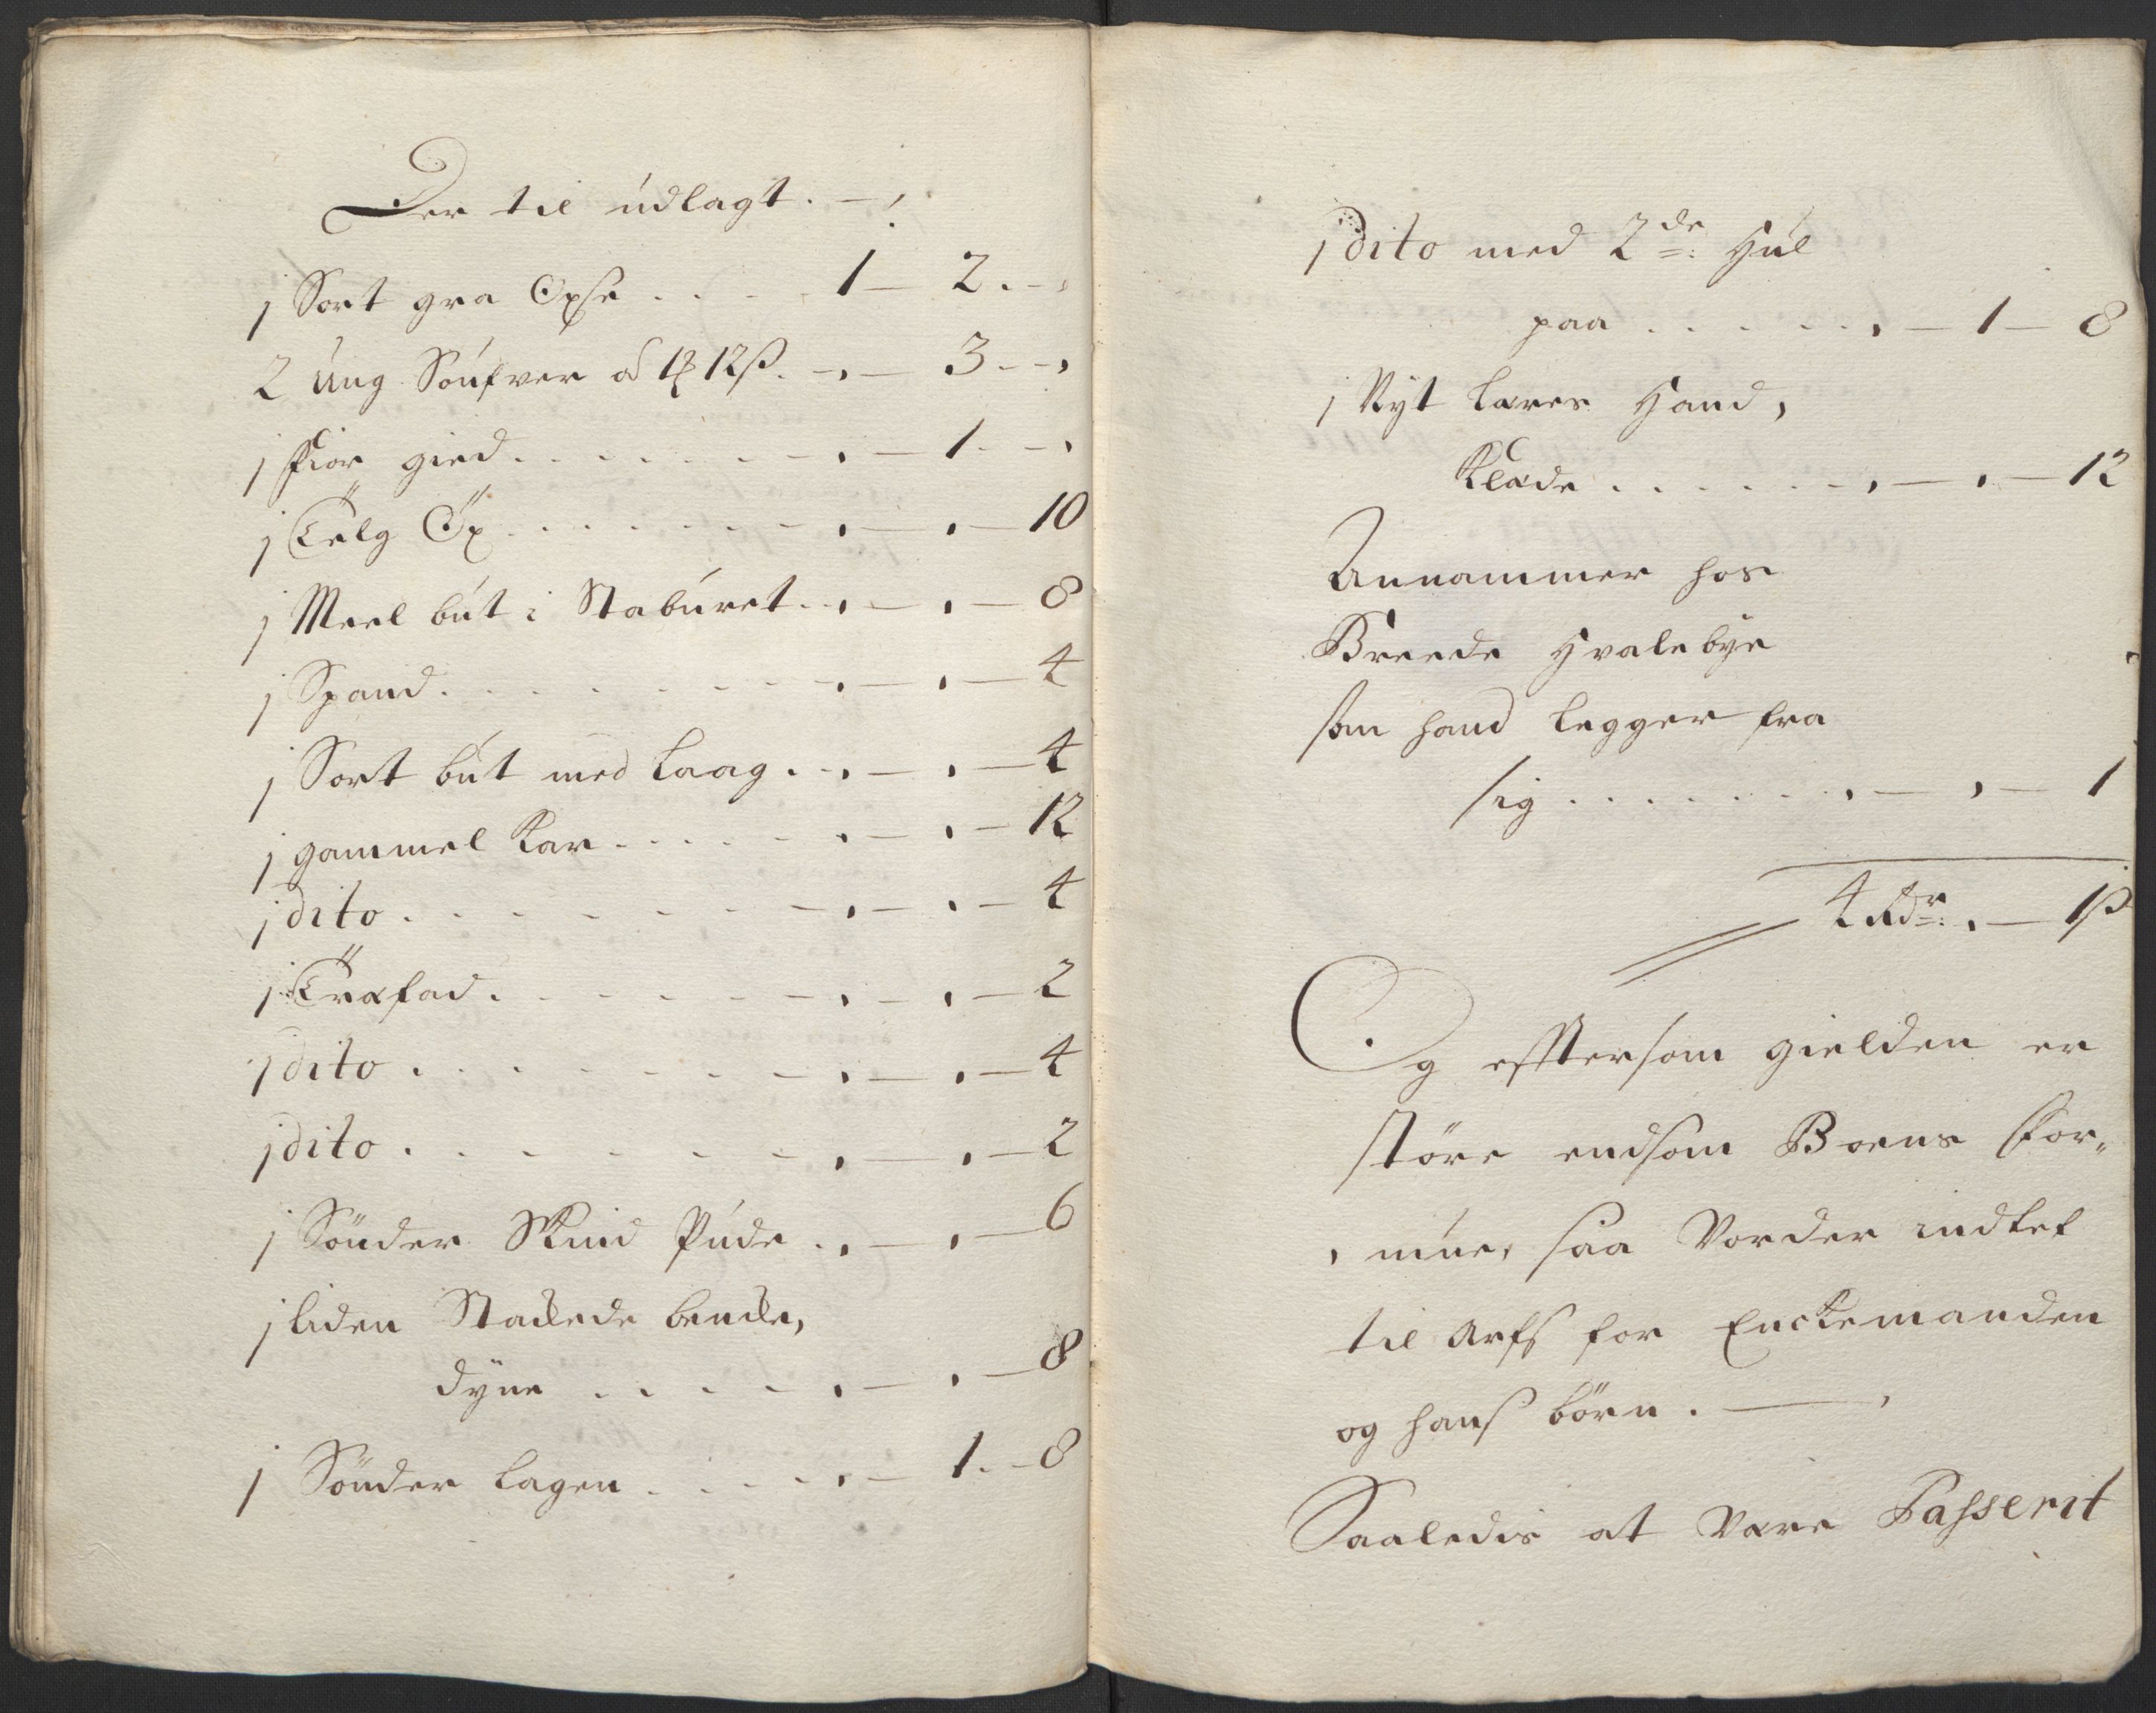 Der til udlagt. —,
1 Sort graa Oxse . . . 1 — 2. – ,
2 Ung Soufver á 1 ₻ 12 ß. – , — 3. – ,
1 Fior gied . . . . . , — 1. – ,
1 Tælg Öx . . . . . , — , — 10
1 Meel büt i Stabüret. . , — , — 8
1 Spand . . . . . , — , — 4
1 Sort büt med laag . . , — , — 4
1 gammel Kar . . . . , — , — 12
1 dito . . . . . , — , — 4
1 Træfad . . . . . , — , — 2
1 dito . . . . . , — , — 4
1 dito . . . . . , — , — 2
1 Sönder Skind Püde . , — , — 6
1 liden Stackede bencke,
dyne . . . . , — , — 8
1 Sönder lagen . . . . , — 1. – 8
1 dito med 2de: Hül
paa . . . . . , — 1 — 8
1 Nyt lærer Hand,
Klæde . . . . . , — , — 12
Annammer hos
Breede Hvalebye
som hand legger fra
sig . . . . . . , — , — 1
4 Rdr: , — 1 ß
Og efftersom gielden er
störe endsom Boens For„
, müe, saa Vorder indtet
til Arfs for Enckemanden
og hans börn. ——,
Saaledis at være Passerit